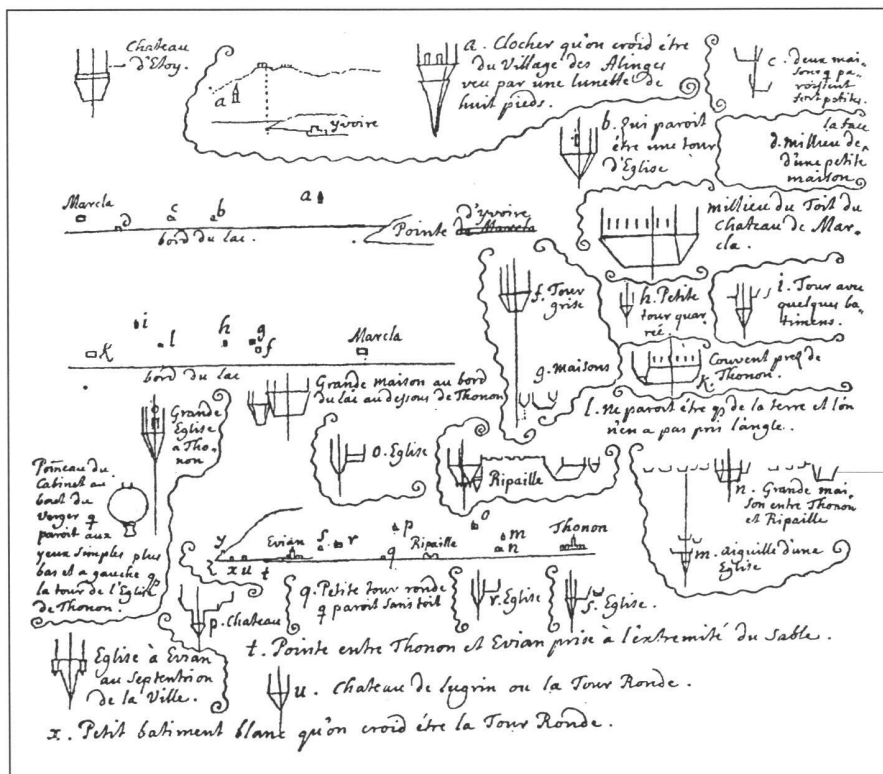 Chateau
d'Etoy.
a
yvoire
a. Clocher qu'on croid étre
du Village des Alinges
veu par une lunette de
huit pieds.
c. deux mai-
sons q pa-
roissent
fort petites.
b. qui paroit
étre une tour
d'Eglise
la face
d. millieu de
d'une petite
maison
Marcla
d
c
b
a
bord du lac.
Pointe d'yvoire
de Marcla
millieu du Toit du
Chateau de Mar-
cla.
f. Tour
grise
h. Petite
tour quar-
reé.
i. Tour avec
quelques ba-
timens.
K
i
l
h
g
f
Marcla
bord du lac
g. maisons
Couvent pres de
K. Thonon.
l. Ne paroit étre q de la terre et l'on
n'en a pas pris l'angle.
Grande
Eglise
a Tho-
non
Grande maison au bord
du lac au dessous de Thonon
o. Eglise
Ripaille
n. Grande mai-
son entre Thonon
et Ripaille
m. aiguille d'une
Eglise
Pomeau du
Cabinet au
bout du
Verger q
paroit aux
yeux simples plus
bas et a gauche q
la tour de l'Eglise
de Thonon.
y
x
u
t
Evian
s
r
p
q
Ripaille
o
m
n
Thonon
p. Chateau
q. Petite tour ronde
q paroit sans toit
r. Eglise
s. Eglise.
t. Pointe entre Thonon et Evian prise à l'extremité du sable.
Eglise à Evian
au septentrion
de la Ville.
u. Chateau de lugrin ou la Tour Ronde.
x. Petit batiment blanc qu'on croid étre la Tour Ronde.